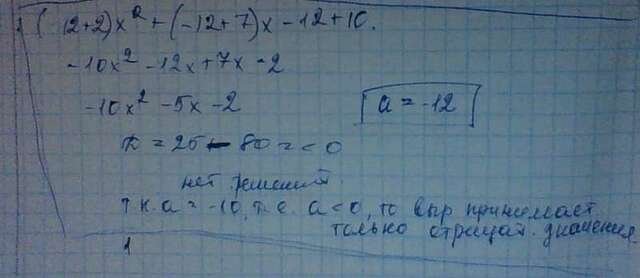 (12+2)x² + (-12+7)x - 12+10.
-10x² - 12x + 7x - 2
-10x² - 5x - 2
a = -12
D = 25 - 80 = < 0
нет решений.
т.к. a = -10, т.е. a < 0, то выр принимает
только отрицат. значения
1